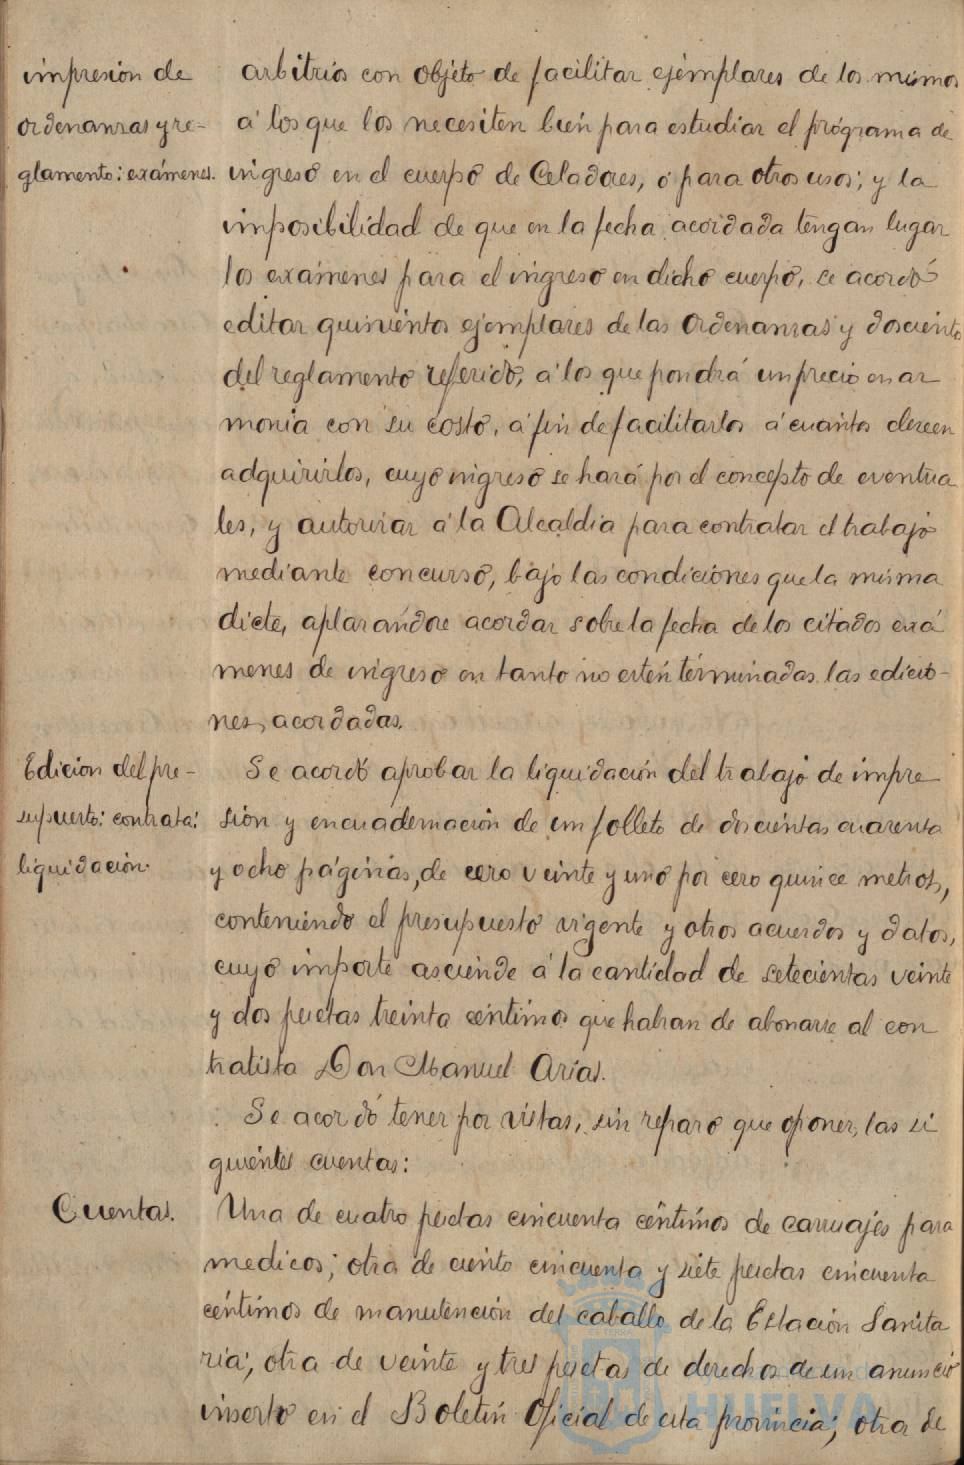 impresion de
ordenanzas y re-
glamento: exámenes.
arbitrios con objeto de facilitar ejemplares de los mismos
á los que los necesiten bien para estudiar el programa de
ingreso en el cuerpo de Celadores, ó para otros usos; y la
imposibilidad de que en la fecha acordada tengan lugar
los exámenes para el ingreso en dicho cuerpo, se acordó
editar quinientos ejemplares de las Ordenanzas y doscientos
del reglamento referido, á los que pondrá un precio en ar
monia con su costo, á fin de facilitarlos á cuantos deseen
adquirirlos, cuyo ingreso se hará por el concepto de eventua
les, y autorizar á la Alcaldia para contratar el trabajo
mediante concurso, bajo las condiciones que la misma
dicte, aplazándose acordar sobre la fecha de los citados exá
menes de ingreso en tanto no estén terminadas las edicio-
nes acordadas.
Edicion del pre-
supuesto: contrata:
liquidación.
Se acordó aprobar la liquidación del trabajo de impre
sión y encuadernación de un folleto de doscientas cuarenta
y ocho páginas, de cero veinte y uno por cero quince metros,
conteniendo el presupuesto vigente y otros acuerdos y datos,
cuyo importe asciende á la cantidad de setecientas veinte
y dos pesetas treinta céntimos que habran de abonarse al con
tratista Don Manuel Arias.
Se acordó tener por vistas, sin reparo que oponer, las si
guientes cuentas:
Cuentas.
Una de cuatro pesetas cincuenta céntimos de carruajes para
medicos; otra de ciento cincuenta y siete pesetas cincuenta
céntimos de manutención del caballo de la Estación Sanita
ria; otra de veinte y tres pesetas de derechos de un anuncio
inserto en el Boletin Oficial de esta provincia; otra de
HUELVA